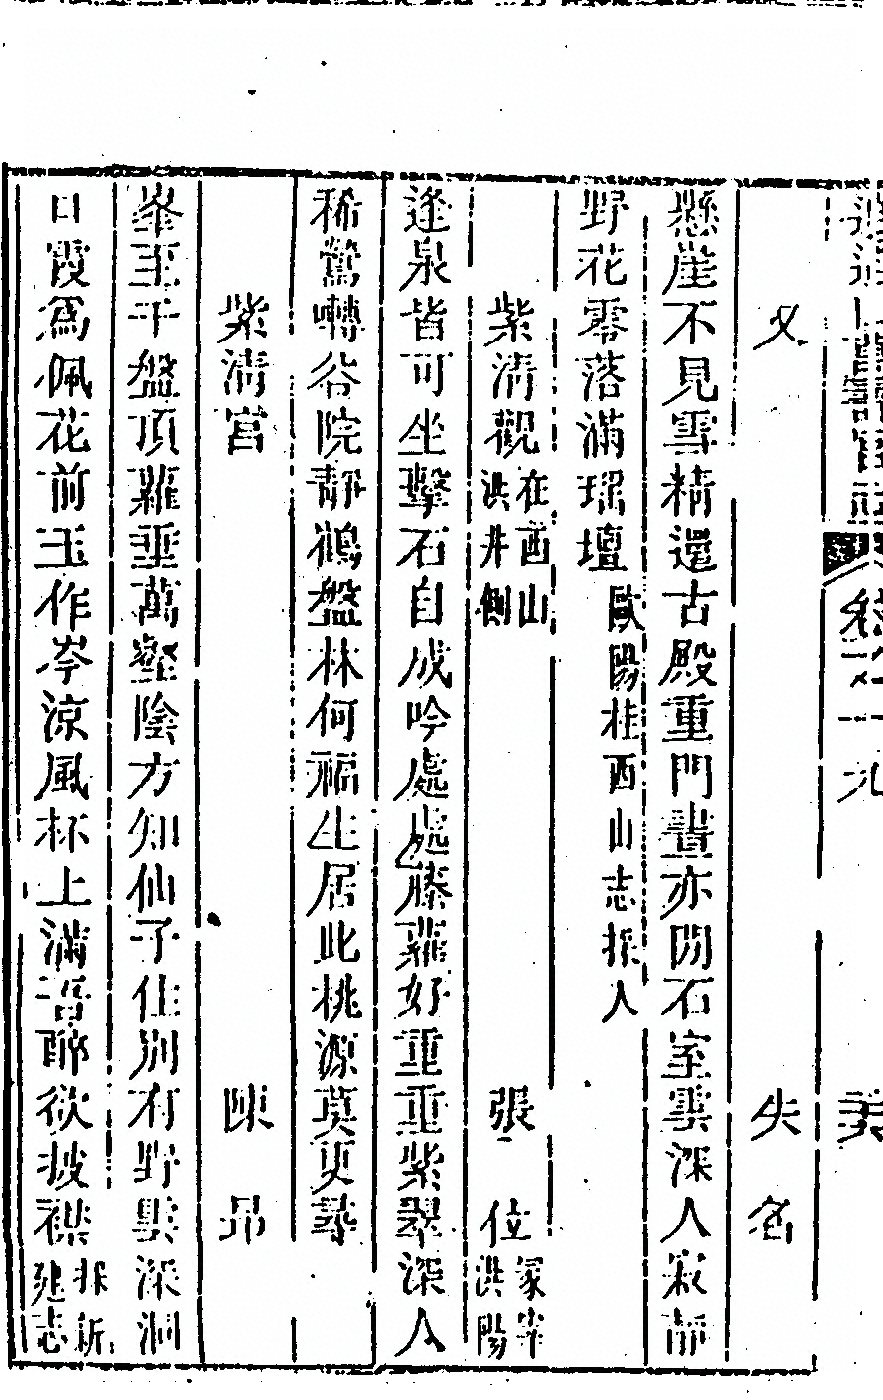 又　失名
懸崖不見雪精還古殿重門晝亦閉石室雲深人寂靜
野花零落滿瑤壇歐陽桂西山志採入
紫清觀在西山洪井側　張位冢宰洪陽
逢泉皆可坐擊石自成吟處處藤蘿好重重紫翠深人
稀鶯囀谷院靜鶴盤林何福生居此桃源莫更尋
紫清宮　陳昂
峯至千盤頂蘿垂萬壑陰方知仙子住別有野雲深洞
日霞為佩花前玉作岑涼風杯上滿吾醉欲披襟採新建志